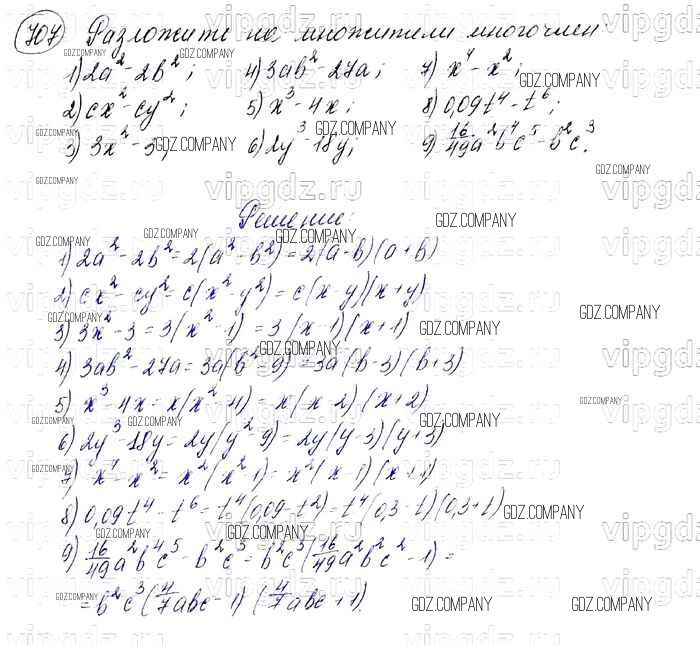 707 Разложите на множители многочлен
1) 2a² - 2b²; 4) 3ab² - 27a; 7) x⁴ - x²;
2) cx² - cy²; 5) x³ - 4x; 8) 0,09t⁴ - t⁶;
3) 3x² - 3; 6) 2y³ - 18y; 9) 16/49 a²b⁴c⁵ - b²c³.
Решение:
1) 2a² - 2b² = 2(a² - b²) = 2(a - b)(a + b)
2) cx² - cy² = c(x² - y²) = c(x - y)(x + y)
3) 3x² - 3 = 3(x² - 1) = 3(x - 1)(x + 1)
4) 3ab² - 27a = 3a(b² - 9) = 3a(b - 3)(b + 3)
5) x³ - 4x = x(x² - 4) = x(x - 2)(x + 2)
6) 2y³ - 18y = 2y(y² - 9) = 2y(y - 3)(y + 3)
7) x⁴ - x² = x²(x² - 1) = x²(x - 1)(x + 1)
8) 0,09t⁴ - t⁶ = t⁴(0,09 - t²) = t⁴(0,3 - t)(0,3 + t)
9) 16/49 a²b⁴c⁵ - b²c³ = b²c³(16/49 a²b²c² - 1) =
= b²c³(4/7 abc - 1)(4/7 abc + 1)
GDZ.COMPANY
vipgdz.ru